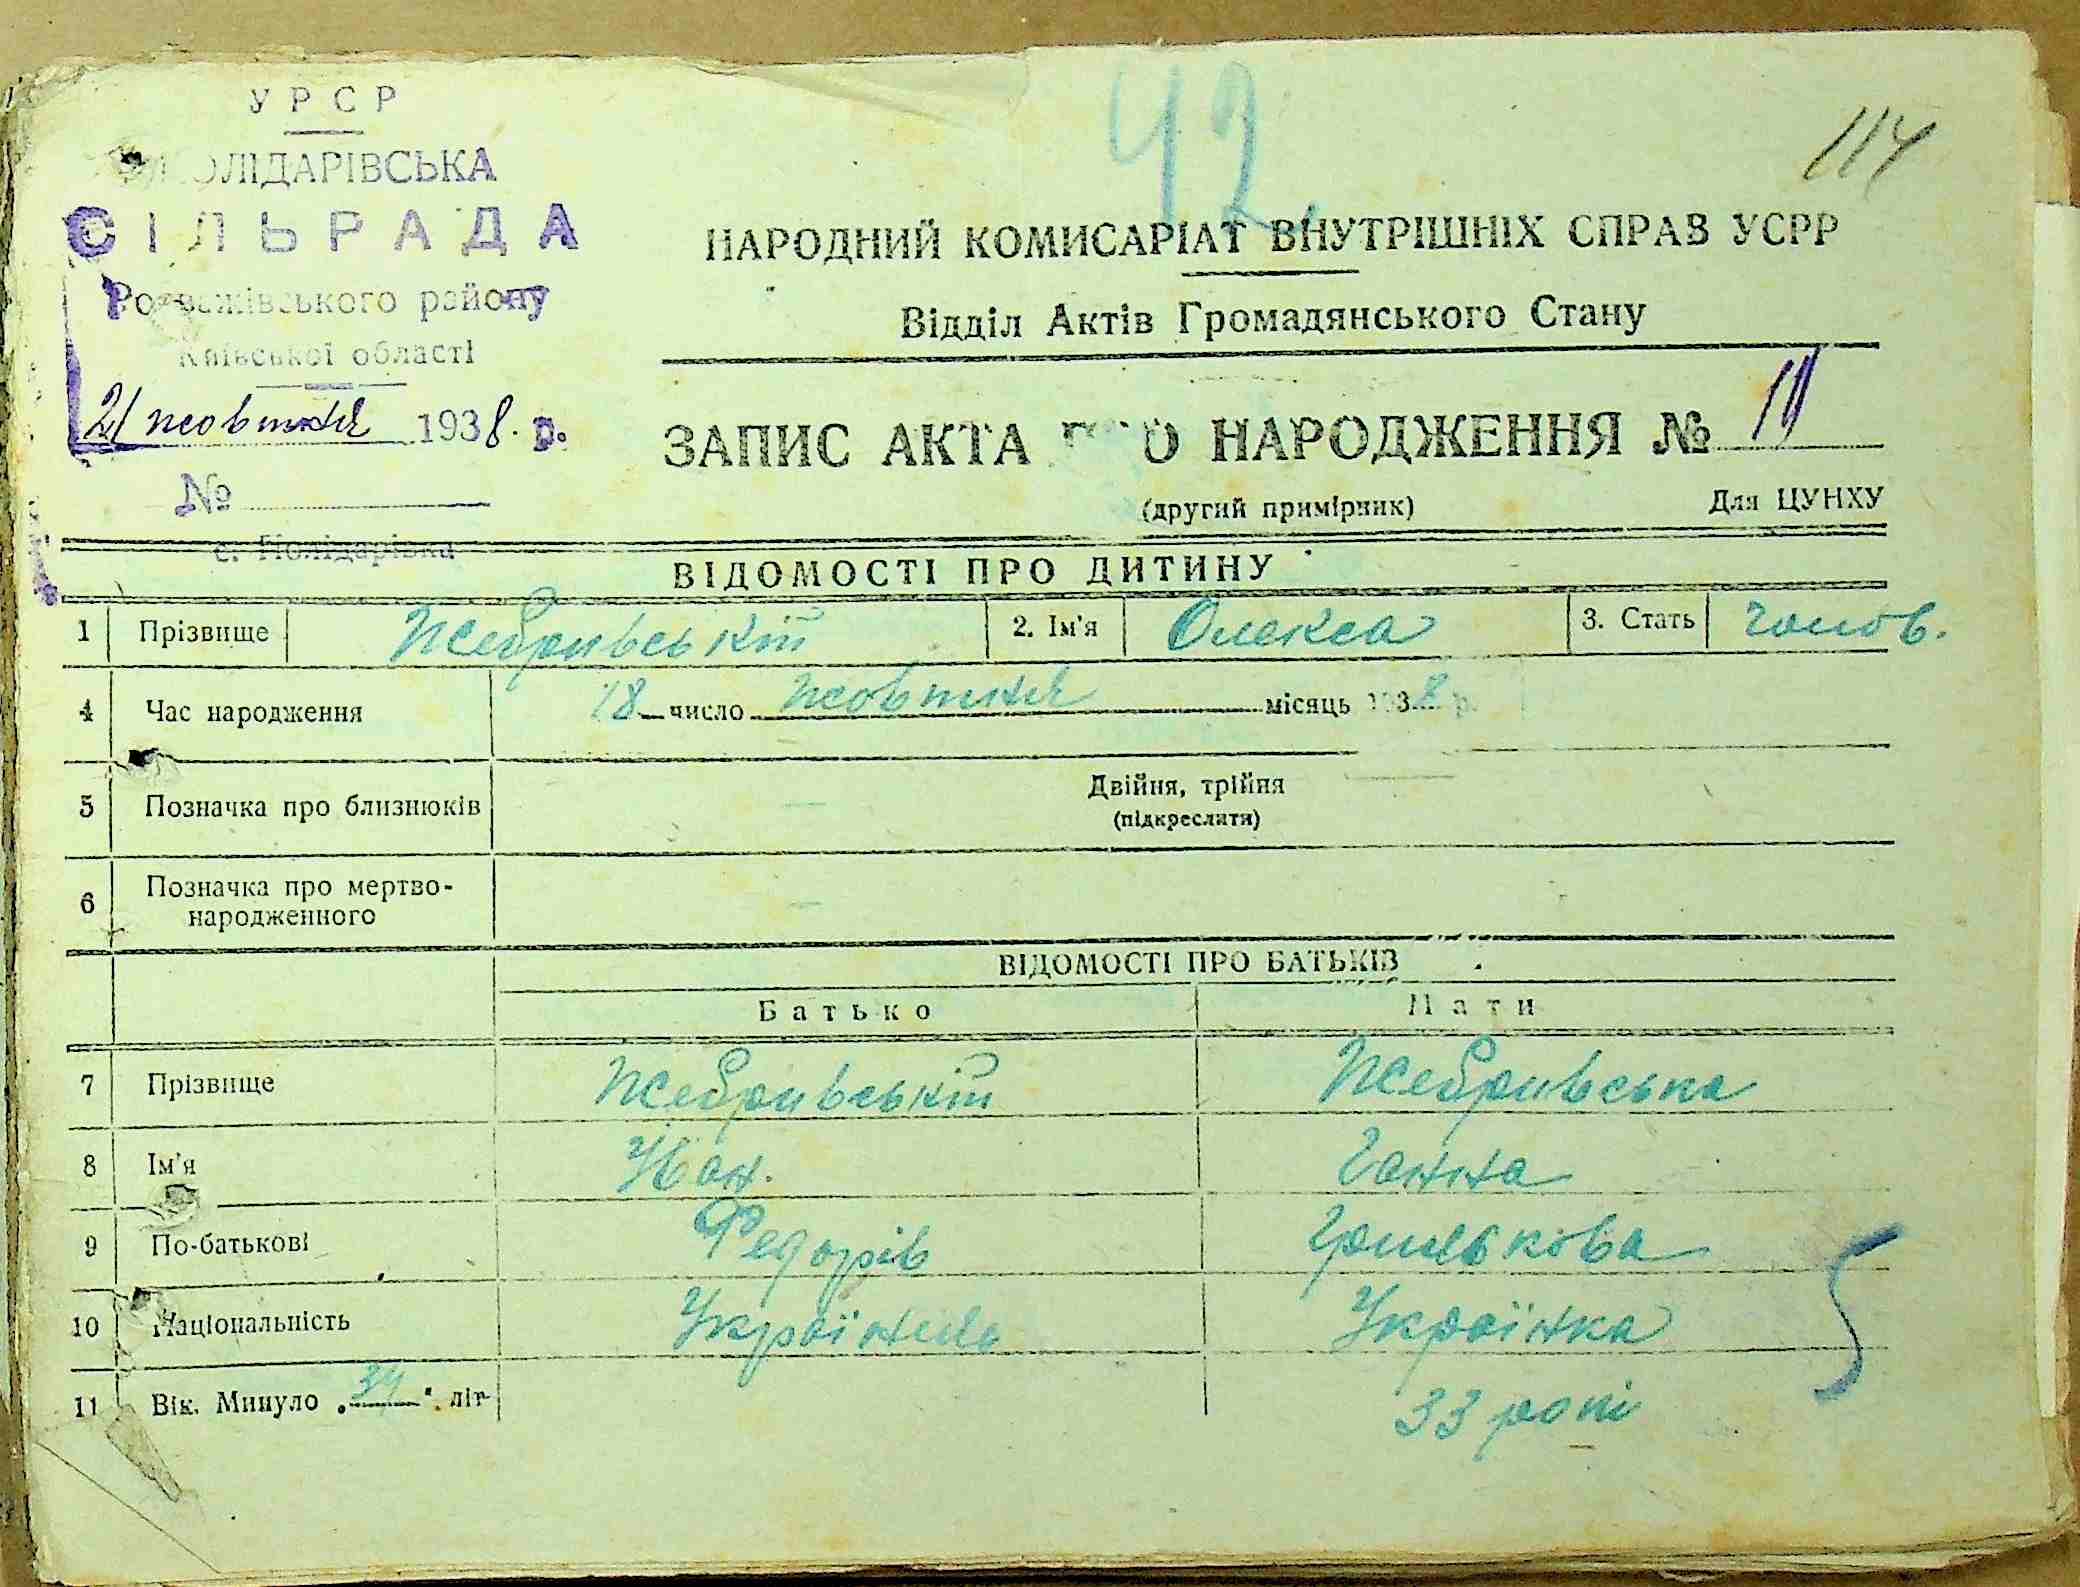 УРСР
ПОЛІДАРІВСЬКА
СІЛЬРАДА
Розважівського району
Київської області
21 жовтня 1938 р.
№
с. Полідарівка
42
114
НАРОДНИЙ КОМИСАРІАТ ВНУТРІШНІХ СПРАВ УСРР
Відділ Актів Громадянського Стану
ЗАПИС АКТА ПРО НАРОДЖЕННЯ №
(другий примірник) Для ЦУНХУ
ВІДОМОСТІ ПРО ДИТИНУ
1 Прізвище Жебривській 2. Ім'я Олекса 3. Стать чолов.
4 Час народження 18 число жовтня місяць 1938 р.
5 Позначка про близнюків Двійня, трійня
(підкреслити)
6 Позначка про мертво-
народженного
ВІДОМОСТІ ПРО БАТЬКІВ
Батько Мати
7 Прізвище Жебривській Жебривська
8 Ім'я Іван. Ганна
9 По-батькові Федорів Грицькова
10 Національність Українець Українка
11 Вік. Минуло 34 літ 33 роки